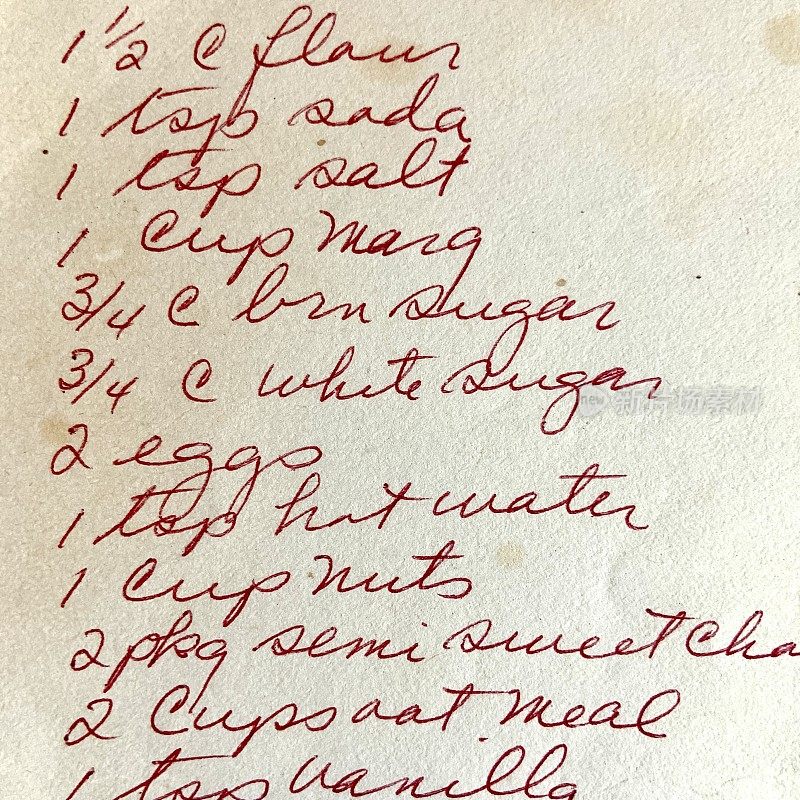 1 1/2 C flour
1 tsp soda
1 tsp salt
1 cup marg
3/4 C brn sugar
3/4 C white sugar
新片场素材
2 eggs
1 tsp hot water
1 cup nuts
2 pkg semi sweet cho
2 cups oat meal
1 tsp vanilla